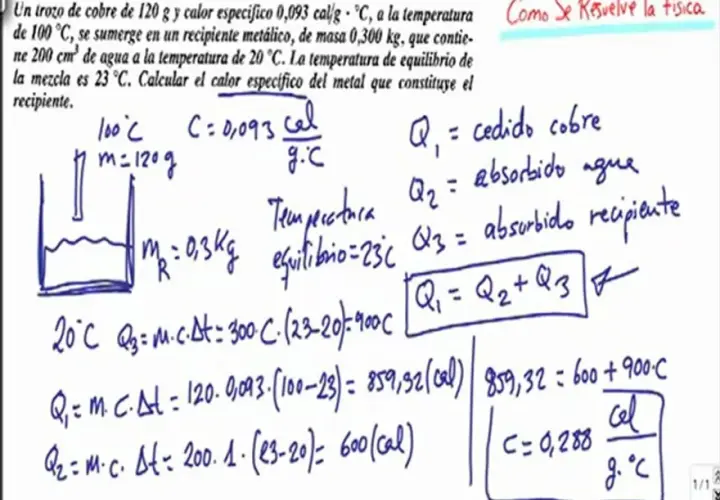 Un trozo de cobre de 120 g y calor específico 0,093 cal/g · °C, a la temperatura
de 100 °C, se sumerge en un recipiente metálico, de masa 0,300 kg, que contie-
ne 200 cm³ de agua a la temperatura de 20 °C. La temperatura de equilibrio de
la mezcla es 23 °C. Calcular el calor específico del metal que constituye el
recipiente.
Como Se Resuelve la física
100°C
m = 120 g
C = 0,093 cal/g.°C
Q₁ = cedido cobre
Q₂ = absorbido agua
Q₃ = absorbido recipiente
Q₁ = Q₂ + Q₃
m_R = 0,3 Kg
Temperatura
equilibrio = 23°C
20°C
Q₃ = m.c.Δt = 300.C.(23-20) = 900C
Q₁ = m.C.Δt = 120.0,093.(100-23) = 859,32 (cal)
Q₂ = m.c.Δt = 200.1.(23-20) = 600 (cal)
859,32 = 600 + 900.C
C = 0,288 cal/g.°C
1/1